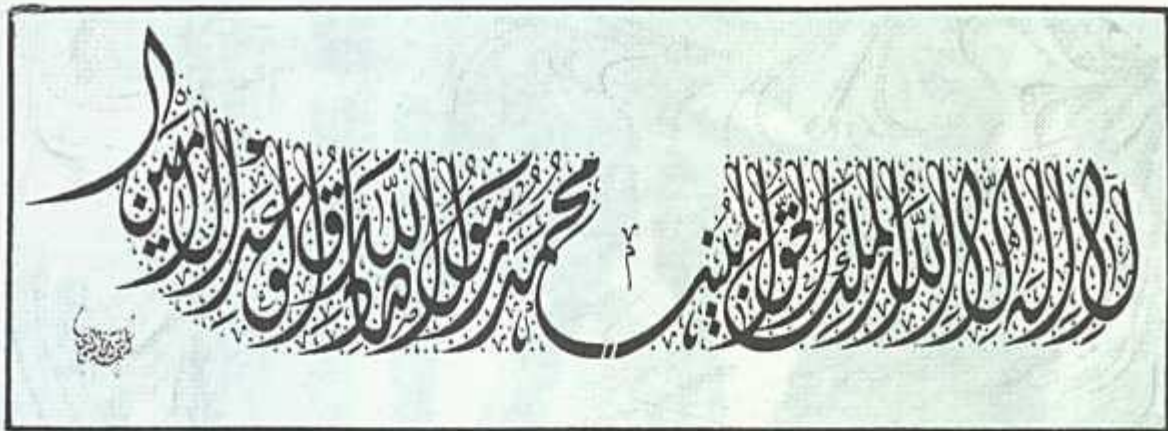 لَا إِلٰهَ إِلَّا اللّٰهُ الْمَلِكُ الْحَقُّ الْمُبِينُ مُحَمَّدٌ رَسُولُ اللّٰهِ صَادِقُ الْوَعْدِ الْأَمِينُ